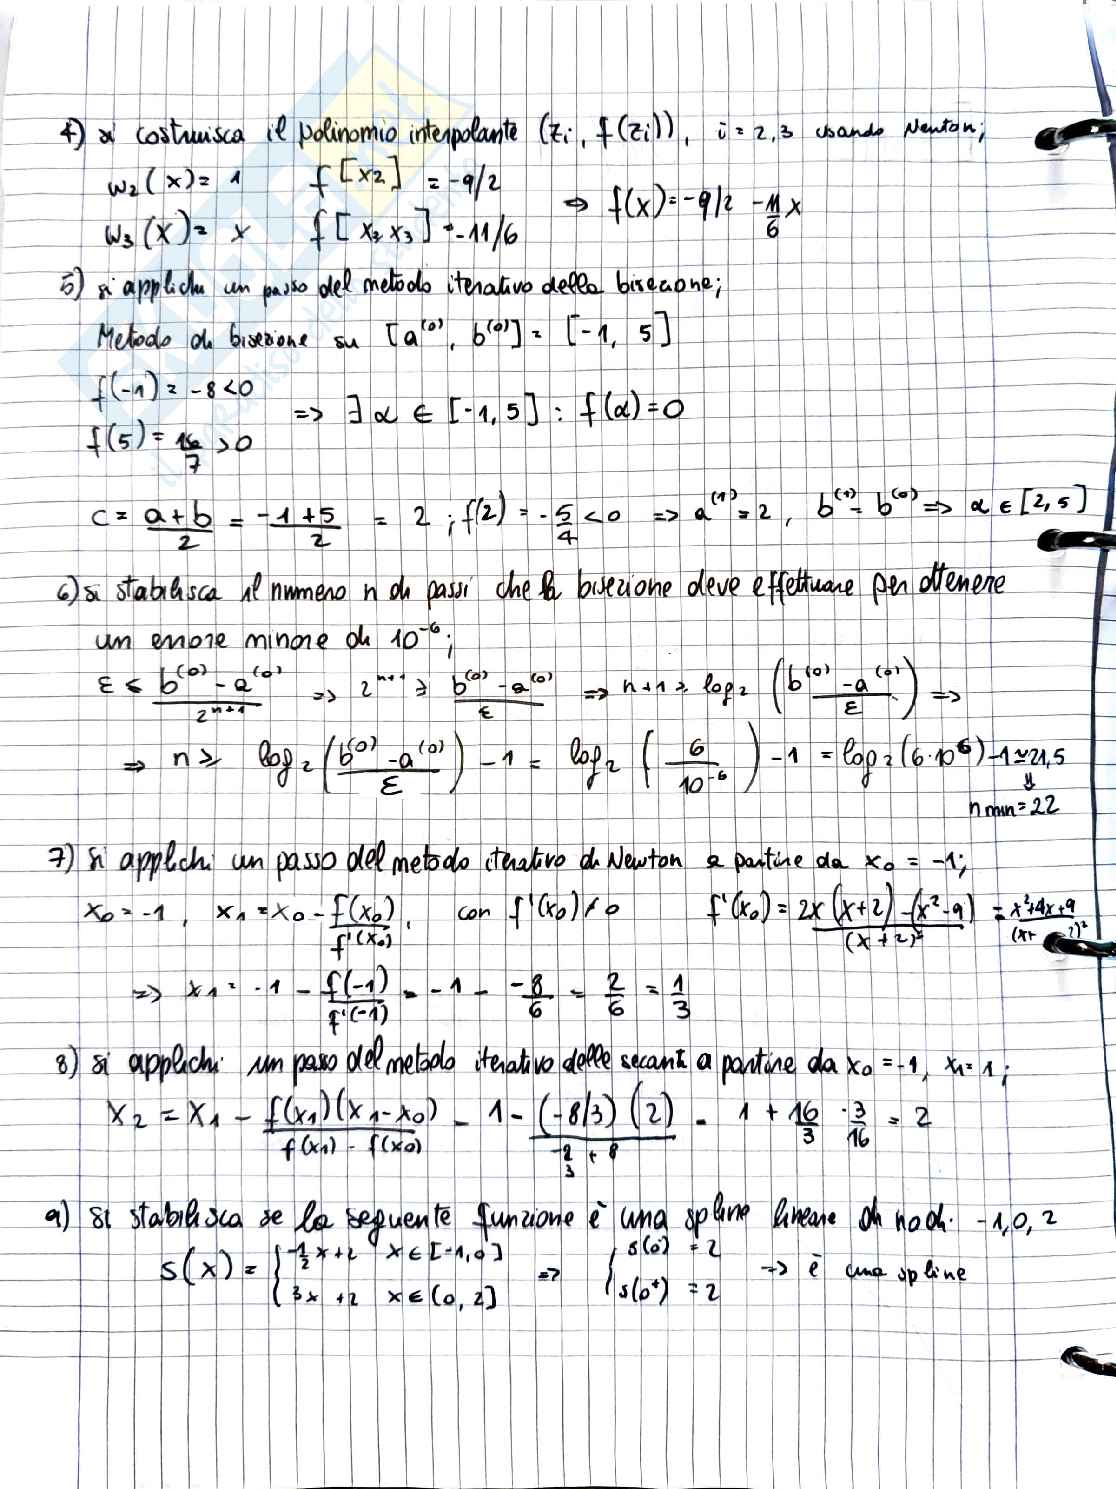 4) si costruisca il polinomio interpolante (zi, f(zi)), i = 2,3 usando Newton;
w₂(x) = 1 f[x₂] = -9/2
⇒ f(x) = -9/2 - 11/6 x
w₃(x) = x f[x₂ x₃] = -11/6
5) si applichi un passo del metodo iterativo della bisezione;
Metodo di bisezione su [a⁽⁰⁾, b⁽⁰⁾] = [-1, 5]
f(-1) = -8 < 0
=> ∃ α ∈ [-1, 5] : f(α) = 0
f(5) = 16/7 > 0
c = a+b/2 = -1+5/2 = 2 ; f(2) = -5/4 < 0 => a⁽¹⁾ = 2, b⁽¹⁾ = b⁽⁰⁾ => α ∈ [2, 5]
6) si stabilisca il numero n di passi che la bisezione deve effettuare per ottenere
un errore minore di 10⁻⁶;
ε ≤ b⁽⁰⁾ - a⁽⁰⁾/2ⁿ⁺¹ => 2ⁿ⁺¹ ≥ b⁽⁰⁾ - a⁽⁰⁾/ε => n+1 ≥ log₂ (b⁽⁰⁾ - a⁽⁰⁾/ε) =>
=> n ≥ log₂ (b⁽⁰⁾ - a⁽⁰⁾/ε) - 1 = log₂ (6/10⁻⁶) - 1 = log₂ (6·10⁶) - 1 ≃ 21,5
⇓
n min = 22
7) si applichi un passo del metodo iterativo di Newton a partire da x₀ = -1;
x₀ = -1, x₁ = x₀ - f(x₀)/f'(x₀), con f'(x₀) ≠ 0 f'(x₀) = 2x(x+2) - (x²-9)/(x+2)² = x²+4x+9/(x+ 2)²
=> x₁ = -1 - f(-1)/f'(-1) = -1 - -8/6 = 2/6 = 1/3
8) si applichi un passo del metodo iterativo delle secanti a partire da x₀ = -1, x₁ = 1;
x₂ = x₁ - f(x₁)(x₁-x₀)/f(x₁) - f(x₀) = 1 - (-8/3)(2)/-8/3 + 8 = 1 + 16/3 · 3/16 = 2
9) si stabilisca se la seguente funzione è una spline lineare di nodi -1, 0, 2
s(x) = { -1/2 x + 2 x ∈ [-1, 0] => { s(0⁻) = 2 -> è una spline
3x + 2 x ∈ (0, 2] s(0⁺) = 2